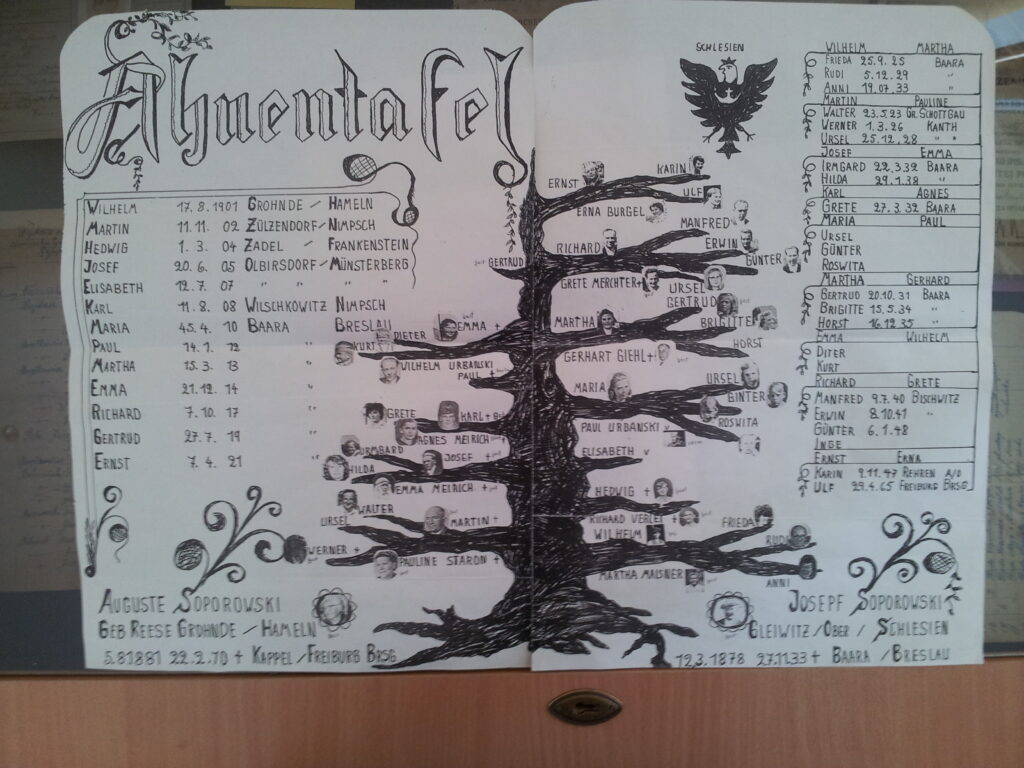 Ahnentafel
WILHELM 17.8.1901 GROHNDE / HAMELN
MARTIN 11.11. 02 ZÜLZENDORF / NIMPSCH
HEDWIG 1. 3. 04 ZADEL / FRANKENSTEIN
JOSEF 20. 6. 05 OLBIRSDORF / MÜNSTERBERG
ELISABETH 12. 7. 07 " " " "
KARL 11. 8. 08 WILSCHKOWITZ NIMPSCH
MARIA 45. 4. 10 BAARA BRESLAU
PAUL 14. 1. 12
MARTHA 15. 3. 13 "
EMMA 21. 12. 14 "
RICHARD 7. 10. 17 "
GERTRUD 27. 7. 19 "
ERNST 7. 4. 21 "
SCHLESIEN
ERNST
KARIN
ULF
ERNA BURGEL
MANFRED
RICHARD
ERWIN
GÜNTER
GERTRUD
GRETE MERCHTER +
URSEL
GERTRUD
BRIGITTE
MARTHA
HORST
GERHART GIEHL +
EMMA +
DIETER
KURT
WILHELM URBANSKI
PAUL +
MARIA
URSEL
GINTER
ROSWITA
PAUL URBANSKI
GRETE
KARL +
AGNES MEIRICH +
ELISABETH
URMBARD
JOSEF +
HILDA
EMMA MEIRICH +
HEDWIG +
WALTER
URSEL
MARTIN +
RICHARD VERLET +
WILHELM
FRIEDA
RUDI
WERNER +
PAULINE STARON +
MARTHA MALSNER
ANNI
WILHELM MARTHA
FRIEDA 25.9.25 BAARA
RUDI 5.12.29 "
ANNI 19.07.33 "
MARTIN PAULINE
WALTER 23.5.23 GR.SCHOTTGAU
WERNER 1.3.26 KANTH
URSEL 25.12.28 " "
JOSEF EMMA
IRMGARD 22.3.32 BAARA
HILDA 29.1.38 "
KARL AGNES
GRETE 27.3.32 BAARA
MARIA PAUL
URSEL
GÜNTER
ROSWITA
MARTHA GERHARD
GERTRUD 20.10.31 BAARA
BRIGITTE 15.5.34 "
HORST 16.12.35 "
EMMA WILHELM
DITER
KURT
RICHARD GRETE
MANFRED 9.7.40 BISCHWITZ
ERWIN 8.10.41 "
GÜNTER 6.1.48
INGE
ERNST ERNA
KARIN 9.11.47 REHREN A/O
ULF 29.4.65 FREIBURG BRSG
AUGUSTE SOPOROWSKI
GEB REESE GROHNDE / HAMELN
5.81881 22.2.70 + KAPPEL / FREIBURG BRSG
JOSEPF SOPOROWSKI
GLEIWITZ / OBER / SCHLESIEN
12.3.1878 27.11.33 + BAARA / BRESLAU